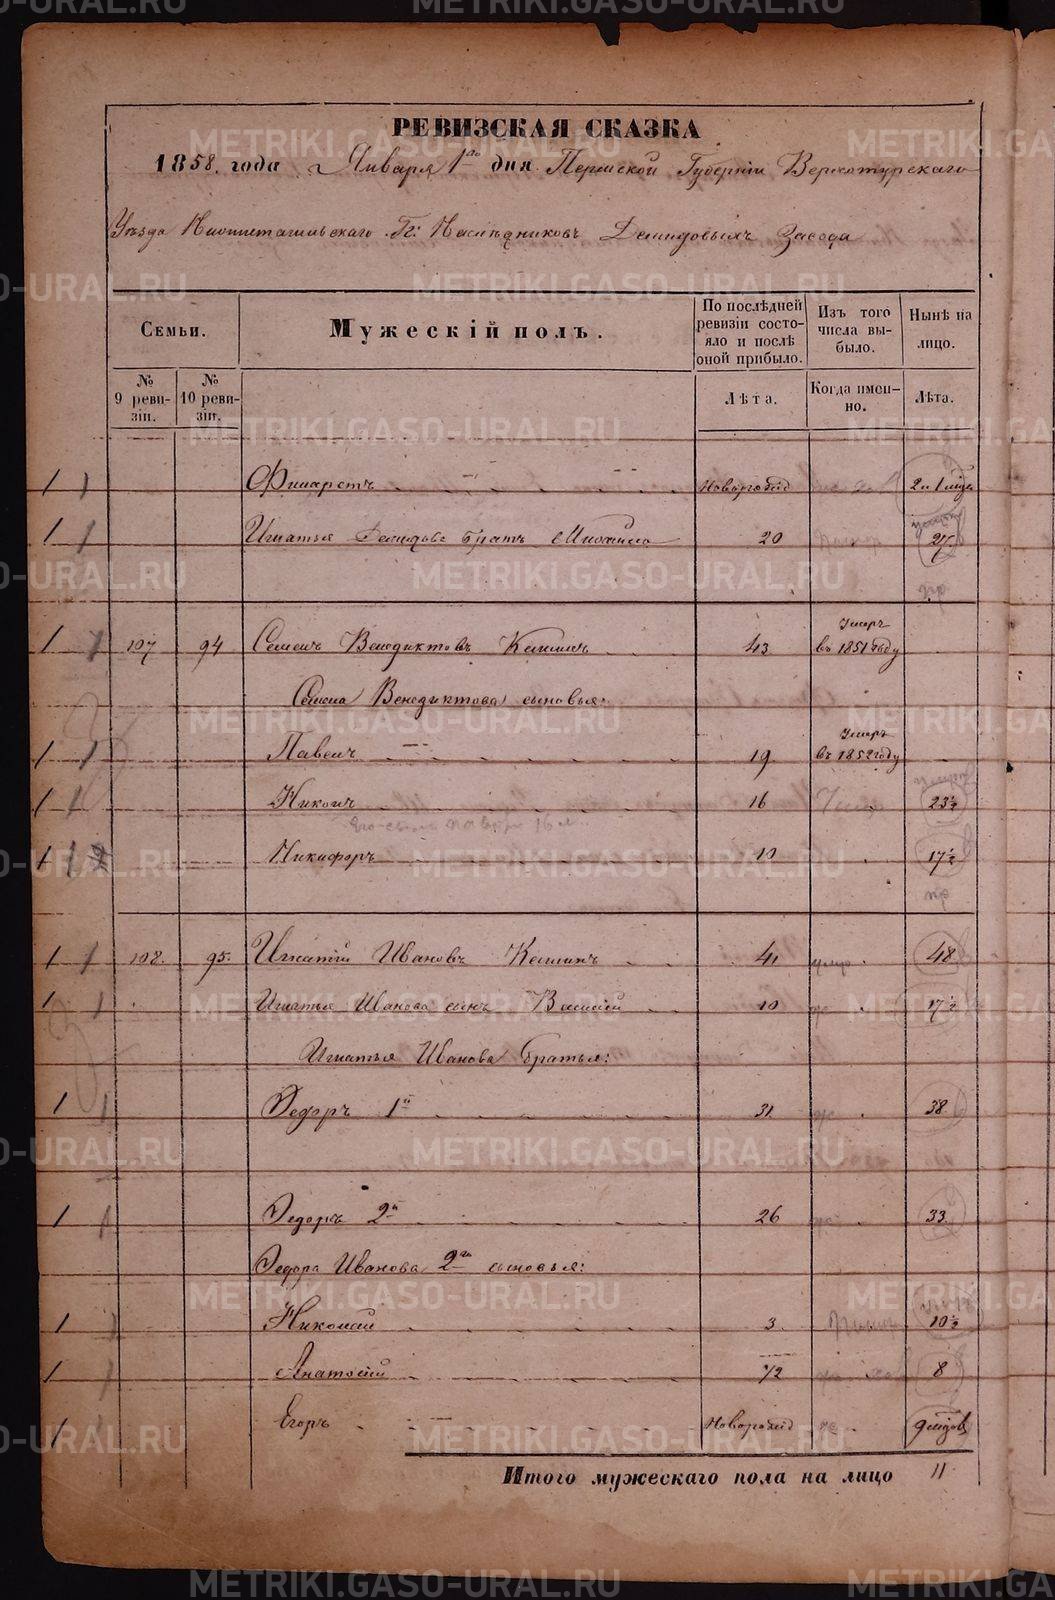 РЕВИЗСКАЯ СКАЗКА
1858 года Января 1го дня Пермской Губерніи Верхотурскаго
Уѣзда Нижнетагильскаго Гг: Наслѣдниковъ Демидовыхъ Завода
Семьи.
Мужескій полъ.
По послѣдней ревизіи состояло и послѣ оной прибыло.
Изъ того числа выбыло.
Нынѣ на лицо.
№ 9 ревизіи.
№ 10 ревизіи.
Лѣта.
Когда именно.
Лѣта.
1 1 Филаретъ 2 и 1 мѣся
1 1 Игнатья Демидова братъ 20 27
пр
1 1 107 94 Семенъ Венедиктовъ 43 Умеръ въ 1851 году
Семена Венедиктова сыновья:
1 1 Павелъ 19 Умеръ въ 1852 году
1 1 Никонъ 16 23½
1 1 Никифоръ 10 17½
пр
1 1 108. 95. Игнатій Ивановъ 41 48
1 1 Игнатья Иванова сынъ Василій 10 17½
Игнатья Иванова братья:
1 1 Федоръ 1й 31 38
1 1 Федоръ 2й 26 33
Федора Иванова 2го сыновья:
1 1 Николай 3 10½
1 1 Анатолій ½ 8
1 1 Егоръ Новорожд 9 мѣсяц
Итого мужескаго пола на лицо 11
METRIKI.GASO-URAL.RU